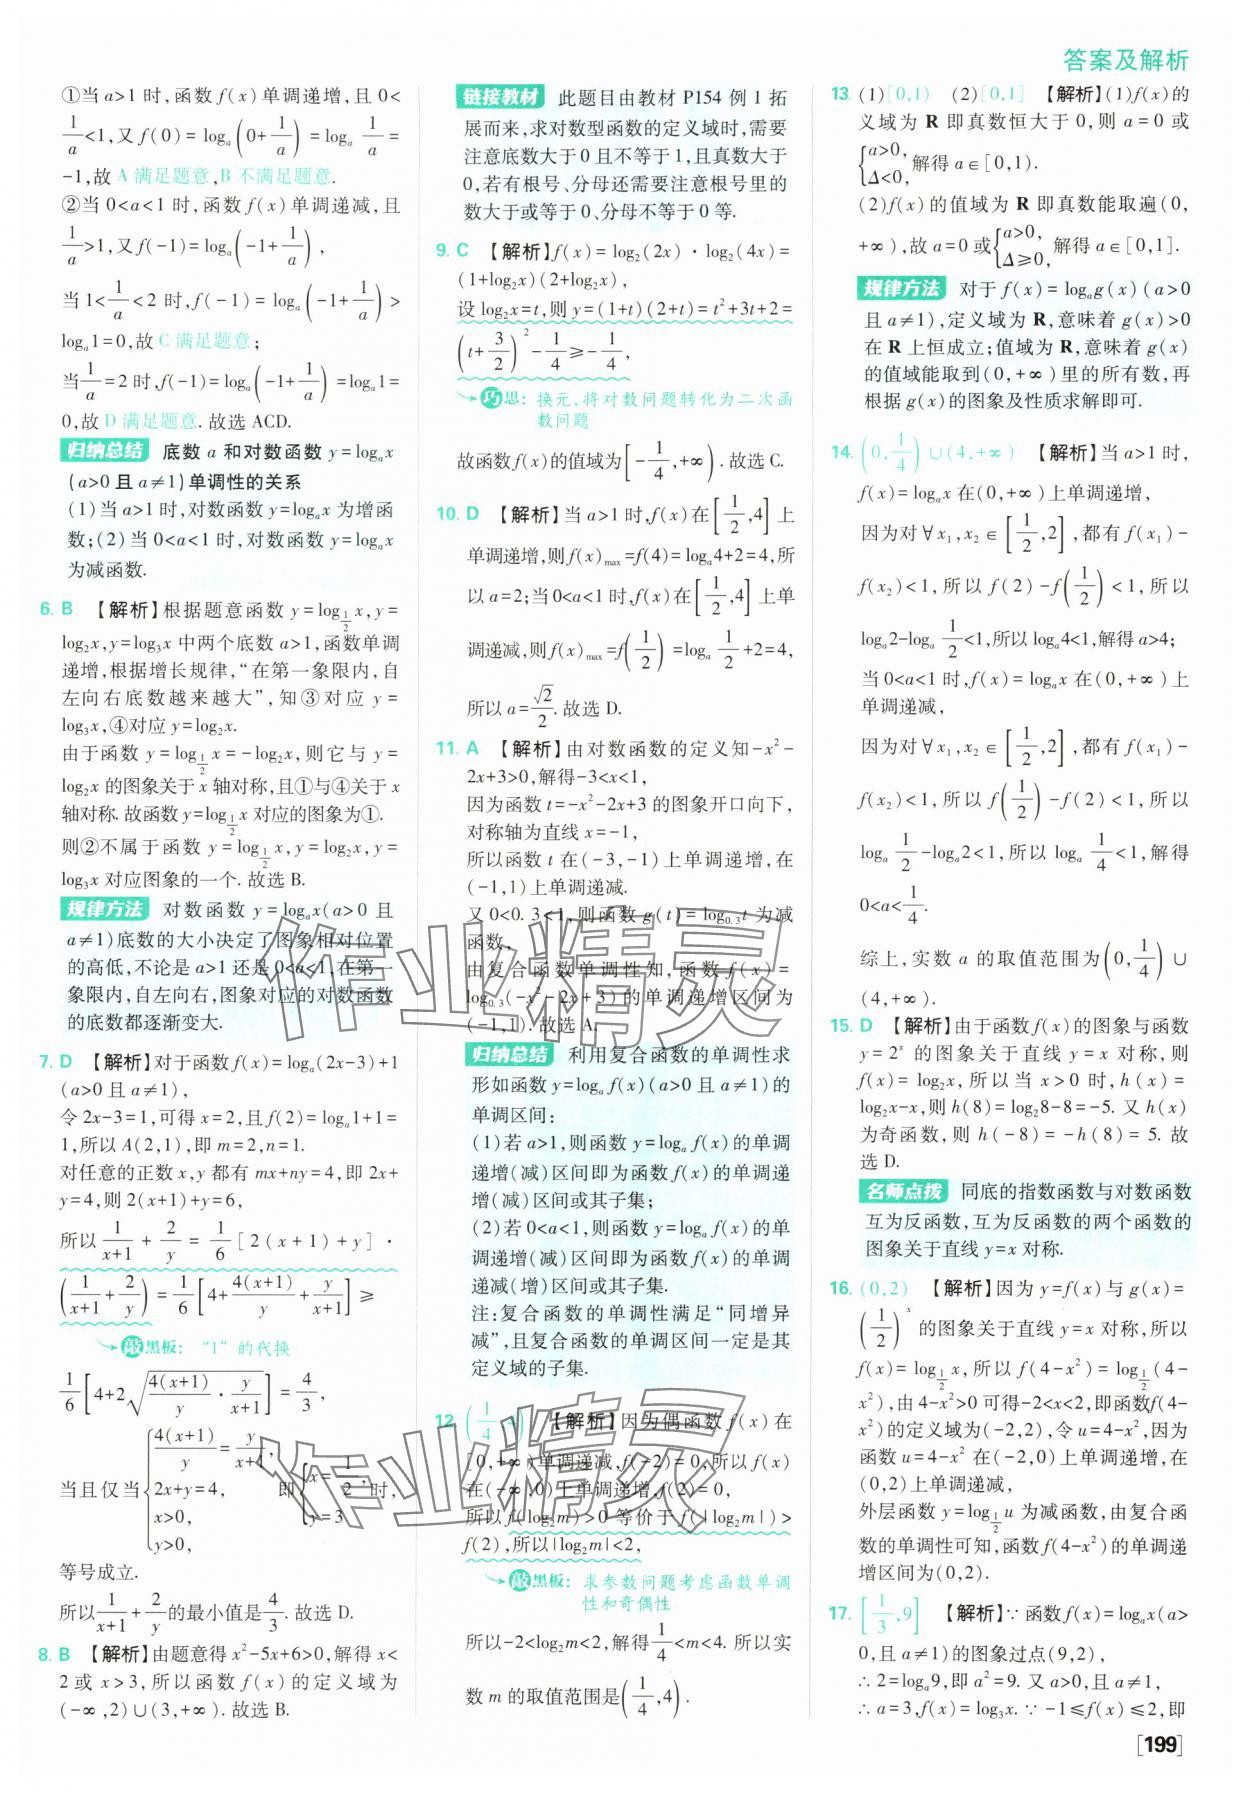 答案及解析
①当 a>1 时,函数 f(x) 单调递增,且 0<
1/a<1,又 f(0)=logₐ(0+1/a)=logₐ 1/a=
-1,故 A 满足题意,B 不满足题意.
②当 0<a<1 时,函数 f(x) 单调递减,且
1/a>1,又 f(-1)=logₐ(-1+1/a),
当 1<1/a<2 时,f(-1)=logₐ(-1+1/a)>
logₐ1=0,故 C 满足题意;
当1/a=2 时,f(-1)=logₐ(-1+1/a)=logₐ1=
0,故 D 满足题意. 故选 ACD.
归纳总结 底数 a 和对数函数 y=logₐx
(a>0 且 a≠1)单调性的关系
(1)当 a>1 时,对数函数 y=logₐx 为增函
数;(2)当 0<a<1 时,对数函数 y=logₐx
为减函数.
6. B 【解析】根据题意函数 y=log_{1/2}x,y=
log₂x,y=log₃x 中两个底数 a>1,函数单调
递增,根据增长规律,“在第一象限内,自
左向右底数越来越大”,知③对应 y=
log₃x,④对应 y=log₂x.
由于函数 y=log_{1/2}x=-log₂x,则它与 y=
log₂x 的图象关于 x 轴对称,且①与④关于 x
轴对称. 故函数 y=log_{1/2}x 对应的图象为①.
则②不属于函数 y=log_{1/2}x,y=log₂x,y=
log₃x 对应图象的一个. 故选 B.
规律方法 对数函数 y=logₐx(a>0 且
a≠1)底数的大小决定了图象相对位置
的高低,不论是 a>1 还是 0<a<1,在第一
象限内,自左向右,图象对应的对数函数
的底数都逐渐变大.
7. D 【解析】对于函数 f(x)=logₐ(2x-3)+1
(a>0 且 a≠1),
令 2x-3=1,可得 x=2,且 f(2)=logₐ1+1=
1,所以 A(2,1),即 m=2,n=1.
对任意的正数 x,y 都有 mx+ny=4,即 2x+
y=4,则 2(x+1)+y=6,
所以 1/(x+1)+2/y=1/6[2(x+1)+y]·
(1/(x+1)+2/y)=1/6[4+4(x+1)/y+y/(x+1)]≥
敲黑板: “1”的代换
1/6[4+2√(4(x+1)/y·y/(x+1))]=4/3,
当且仅当{4(x+1)/y=y/(x+1), 2x+y=4, x>0, y>0, 即{x=1/2, y=3 时,
等号成立.
所以1/(x+1)+2/y的最小值是4/3. 故选 D.
8. B 【解析】由题意得 x²-5x+6>0,解得 x<
2 或 x>3,所以函数 f(x) 的定义域为
(-∞,2)∪(3,+∞). 故选 B.
链接教材 此题目由教材 P154 例 1 拓
展而来,求对数型函数的定义域时,需要
注意底数大于 0 且不等于 1,且真数大于
0,若有根号、分母还需要注意根号里的
数大于或等于 0、分母不等于 0 等.
9. C 【解析】f(x)=log₂(2x)·log₂(4x)=
(1+log₂x)(2+log₂x),
设 log₂x=t,则 y=(1+t)(2+t)=t²+3t+2=
(t+3/2)²-1/4≥-1/4,
巧思: 换元,将对数问题转化为二次函
数问题
故函数 f(x)的值域为[-1/4,+∞). 故选 C.
10. D 【解析】当 a>1 时,f(x)在[1/2,4]上
单调递增,则 f(x)max=f(4)=logₐ4+2=4,所
以 a=2;当 0<a<1 时,f(x)在[1/2,4]上单
调递减,则 f(x)max=f(1/2)=logₐ 1/2+2=4,
所以 a=√2/2. 故选 D.
11. A 【解析】由对数函数的定义知-x²-
2x+3>0,解得-3<x<1,
因为函数 t=-x²-2x+3 的图象开口向下,
对称轴为直线 x=-1,
所以函数 t 在(-3,-1)上单调递增,在
(-1,1)上单调递减.
又 0<0.3<1,则函数 g(t)=log₀.₃t 为减
函数,
由复合函数单调性知,函数 f(x)=
log₀.₃(-x²-2x+3)的单调递增区间为
(-1,1). 故选 A.
归纳总结 利用复合函数的单调性求
形如函数 y=logₐf(x)(a>0 且 a≠1)的
单调区间:
(1)若 a>1,则函数 y=logₐf(x)的单调
递增(减)区间即为函数 f(x)的单调递
增(减)区间或其子集;
(2)若 0<a<1,则函数 y=logₐf(x)的单
调递增(减)区间即为函数 f(x)的单调
递减(增)区间或其子集.
注:复合函数的单调性满足“同增异
减”,且复合函数的单调区间一定是其
定义域的子集.
12. (1/4,4) 【解析】因为偶函数 f(x)在
[0,+∞)单调递减,f(-2)=0,所以 f(x)
在(-∞,0)上单调递增,f(2)=0,
所以 f(log₂m)>0 等价于 f(|log₂m|)>
f(2),所以|log₂m|<2,
敲黑板: 求参数问题考虑函数单调
性和奇偶性
所以-2<log₂m<2,解得1/4<m<4. 所以实
数 m 的取值范围是(1/4,4).
13. (1)[0,1) (2)[0,1] 【解析】(1)f(x)的
义域为 R 即真数恒大于 0,则 a=0 或
{a>0, Δ<0, 解得 a∈[0,1).
(2)f(x)的值域为 R 即真数能取遍(0,
+∞),故 a=0 或{a>0, Δ≥0, 解得 a∈[0,1].
规律方法 对于 f(x)=logₐg(x)(a>0
且 a≠1),定义域为 R,意味着 g(x)>0
在 R 上恒成立;值域为 R,意味着 g(x)
的值域能取到(0,+∞)里的所有数,再
根据 g(x)的图象及性质求解即可.
14. (0,1/4)∪(4,+∞) 【解析】当 a>1 时,
f(x)=logₐx 在(0,+∞)上单调递增,
因为对∀x₁,x₂∈[1/2,2],都有 f(x₁)-
f(x₂)<1,所以 f(2)-f(1/2)<1,所以
logₐ2-logₐ 1/2<1,所以 logₐ4<1,解得 a>4;
当 0<a<1 时,f(x)=logₐx 在(0,+∞)上
单调递减,
因为对∀x₁,x₂∈[1/2,2],都有 f(x₁)-
f(x₂)<1,所以 f(1/2)-f(2)<1,所以
logₐ 1/2-logₐ2<1,所以 logₐ 1/4<1,解得
0<a<1/4.
综上,实数 a 的取值范围为(0,1/4)∪
(4,+∞).
15. D 【解析】由于函数 f(x)的图象与函数
y=2ˣ 的图象关于直线 y=x 对称,则
f(x)=log₂x,所以当 x>0 时,h(x)=
log₂x-x,则 h(8)=log₂8-8=-5. 又 h(x)
为奇函数,则 h(-8)=-h(8)=5. 故
选 D.
名师点拨 同底的指数函数与对数函数
互为反函数,互为反函数的两个函数的
图象关于直线 y=x 对称.
16. (0,2) 【解析】因为 y=f(x)与 g(x)=
(1/2)ˣ 的图象关于直线 y=x 对称,所以
f(x)=log_{1/2}x,所以 f(4-x²)=log_{1/2}(4-
x²),由 4-x²>0 可得-2<x<2,即函数f(4-
x²)的定义域为(-2,2),令 u=4-x²,因为
函数 u=4-x² 在(-2,0)上单调递增,在
(0,2)上单调递减,
外层函数 y=log_{1/2}u 为减函数,由复合函
数的单调性可知,函数 f(4-x²)的单调递
增区间为(0,2).
17. [1/3,9] 【解析】∵函数 f(x)=logₐx(a>
0,且 a≠1)的图象过点(9,2),
∴2=logₐ9,即 a²=9. 又 a>0,且 a≠1,
∴a=3,f(x)=log₃x. ∵-1≤f(x)≤2,即
[199]
作业精灵
作业精灵